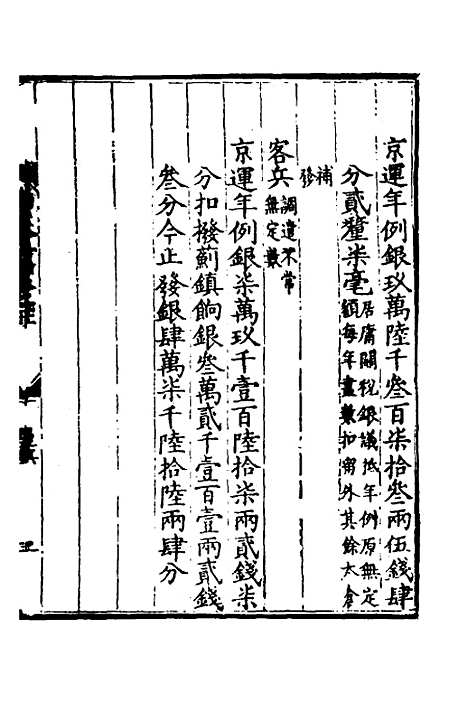 京運年例銀玖萬陸千叁百柒拾叁兩伍錢肆
分貳釐柒毫居庸關稅銀議抵年例原無定額每年盡數扣留外其餘太倉
補修
客兵調遣不常無定數
京運年例銀柒萬玖千壹百陸拾柒兩貳錢柒
分扣撥薊鎮餉銀叁萬貳千壹百壹兩貳錢
叁分今止發銀肆萬柒千陸拾陸兩肆分